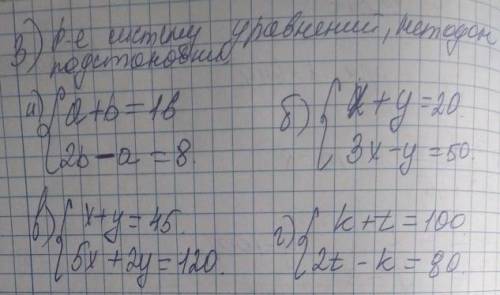 3) р-е систему уравнений, методом
подстановки
а) { a+b=16
2b-a=8.
б) { x+y=20.
3x-y=50.
в) { x+y=45.
5x+2y=120.
г) { k+t=100.
2t-k=80.